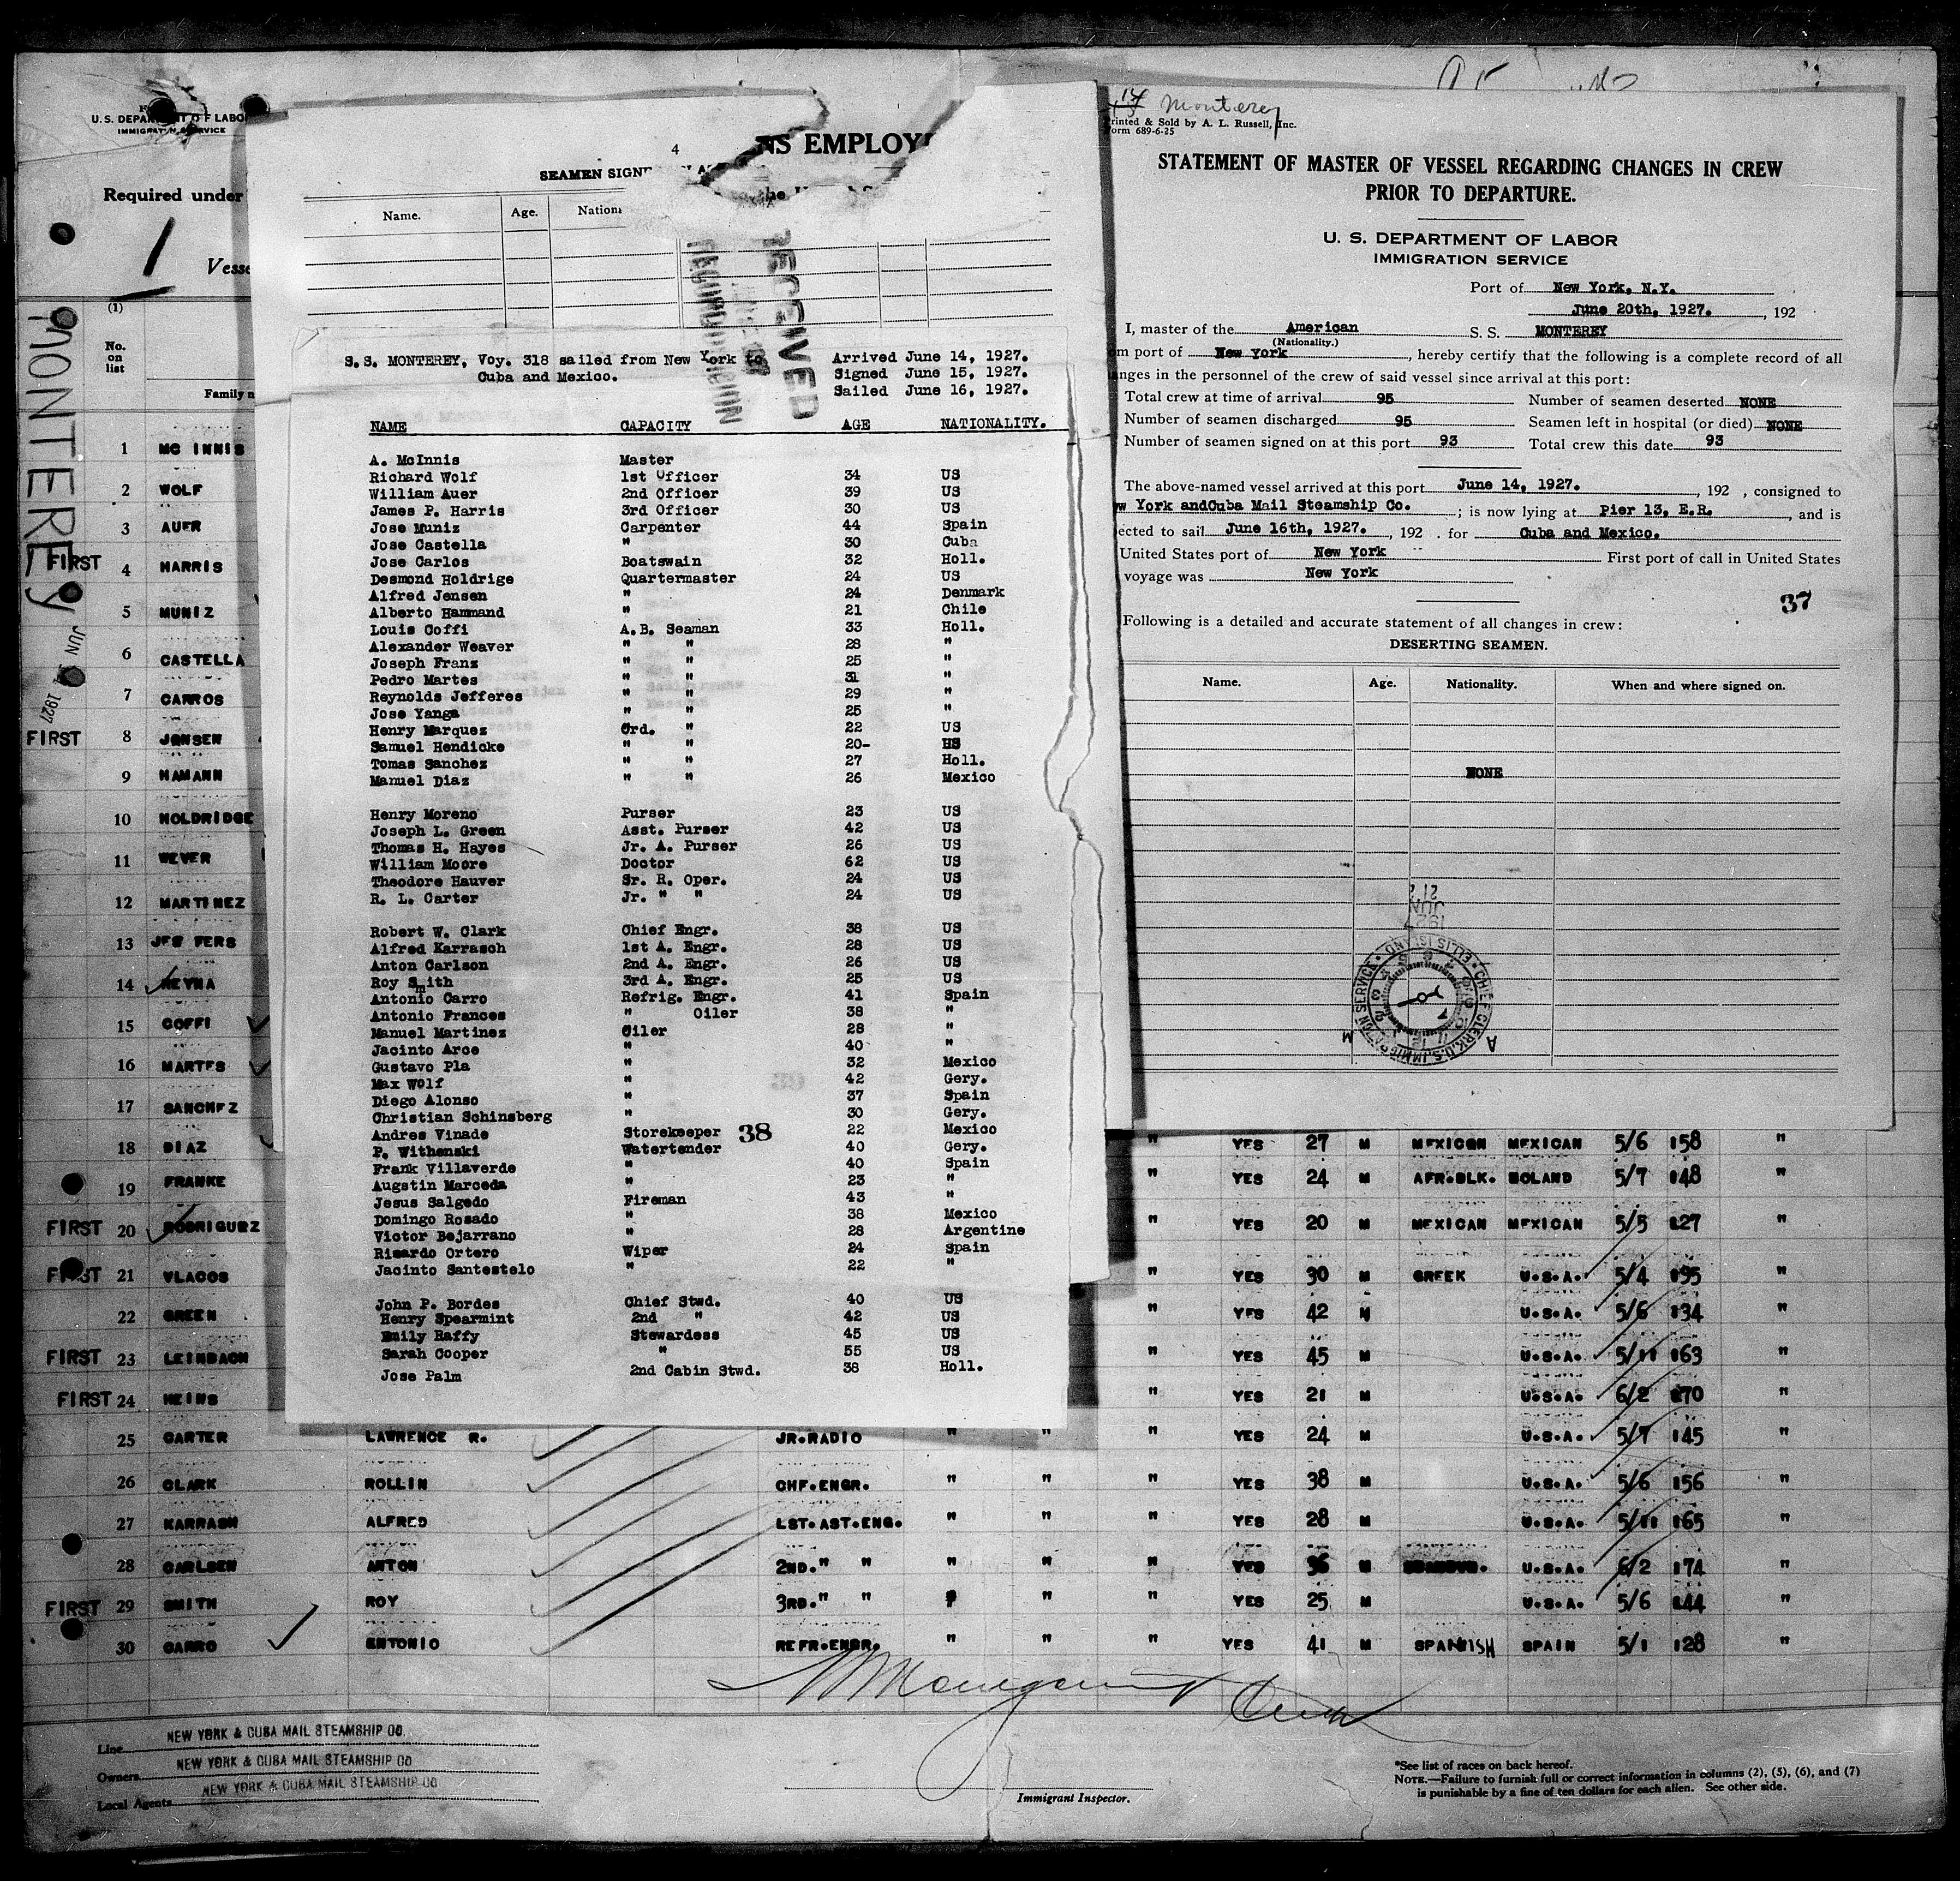 U.S. DEPARTMENT OF LABOR
IMMIGRATION SERVICE
Required under
1
Vesse
(1)
No.
on
list
Family n
MONTEREY
JUN 1927
1 MC INNIS
2 WOLF
3 AUER
FIRST 4 HARRIS
5 MUNIZ
6 CASTELLA
7 CARROS
FIRST 8 JENSEN
9 HAMANN
10 HOLDRIDGE
11 WEVER
12 MARTINEZ
13 JEFFERS
14 REYNA
15 COFFI
16 MARTES
17 SANCHEZ
18 DIAZ
19 FRANKE
FIRST 20 RODRIGUEZ
FIRST 21 VLACOS
22 GREEN
FIRST 23 LEINBACH
FIRST 24 HEINS
4
NS EMPLOY
SEAMEN SIGN
Name. Age. Nation
RECEIVED
S.S. MONTEREY, Voy. 318 sailed from New York to
Cuba and Mexico.
Arrived June 14, 1927.
Signed June 15, 1927.
Sailed June 16, 1927.
NAME CAPACITY AGE NATIONALITY.
A. McInnis Master
Richard Wolf 1st Officer 34 US
William Auer 2nd Officer 39 US
James P. Harris 3rd Officer 30 US
Jose Muniz Carpenter 44 Spain
Jose Castella " 30 Cuba
Jose Carlos Boatswain 32 Holl.
Desmond Holdrige Quartermaster 24 US
Alfred Jensen " 24 Denmark
Alberto Hammand " 21 Chile
Louis Coffi A.B. Seaman 33 Holl.
Alexander Weaver " " 28 "
Joseph Franz " " 25 "
Pedro Martes " " 31 "
Reynolds Jefferes " " 29 "
Jose Yanga " " 25 "
Henry Marquez Ord. " 22 US
Samuel Hendicke " " 20- US
Tomas Sanchez " " 27 Holl.
Manuel Diaz " " 26 Mexico
Henry Moreno Purser 23 US
Joseph L. Green Asst. Purser 42 US
Thomas H. Hayes Jr. A. Purser 26 US
William Moore Doctor 62 US
Theodore Hauver Sr. R. Oper. 24 US
R. L. Carter Jr. " " 24 US
Robert W. Clark Chief Engr. 38 US
Alfred Karrasch 1st A. Engr. 28 US
Anton Carlson 2nd A. Engr. 26 US
Roy Smith 3rd A. Engr. 25 US
Antonio Carro Refrig. Engr. 41 Spain
Antonio Frances " Oiler 38 "
Manuel Martinez Oiler 28 "
Jacinto Arce " 40 "
Gustavo Pla " 32 Mexico
Max Wolf " 42 Gery.
Diego Alonso " 37 Spain
Christian Schinsberg " 30 Gery.
Andres Vinade Storekeeper 38 22 Mexico
P. Withenski Watertender 40 Gery.
Frank Villaverde " 40 Spain
Augstin Marceda " 23 "
Jesus Salgedo Fireman 43 "
Domingo Rosado " 38 Mexico
Victor Bejarrano " 28 Argentine
Ricardo Ortero Wiper 24 Spain
Jacinto Santestelo " 22 "
John P. Bordes Chief Stwd. 40 US
Henry Spearmint 2nd " 42 US
Emily Raffy Stewardess 45 US
Sarah Cooper " 55 US
Jose Palm 2nd Cabin Stwd. 38 Holl.
Monterey
Printed & Sold by A. L. Russell, Inc.
Form 689-6-25
STATEMENT OF MASTER OF VESSEL REGARDING CHANGES IN CREW
PRIOR TO DEPARTURE.
U. S. DEPARTMENT OF LABOR
IMMIGRATION SERVICE
Port of New York, N.Y.
June 20th, 1927. , 192
I, master of the American S. S. MONTEREY
(Nationality.)
om port of New York , hereby certify that the following is a complete record of all
anges in the personnel of the crew of said vessel since arrival at this port:
Total crew at time of arrival 95 Number of seamen deserted NONE
Number of seamen discharged 95 Seamen left in hospital (or died) NONE
Number of seamen signed on at this port 93 Total crew this date 93
The above-named vessel arrived at this port June 14, 1927. , 192 , consigned to
w York andCuba Mail Steamship Co. ; is now lying at Pier 13, E.R. , and is
ected to sail June 16th, 1927. , 192 . for Cuba and Mexico.
United States port of New York First port of call in United States
voyage was New York
37
Following is a detailed and accurate statement of all changes in crew:
DESERTING SEAMEN.
Name. Age. Nationality. When and where signed on.
NONE
CHIEF CLERK, U.S. IMMIGRATION SERVICE ELLIS ISLAND
" YES 27 M MEXICAN MEXICAN 5/6 158 "
" YES 24 M AFR.BLK. HOLAND 5/7 148 "
" YES 20 M MEXICAN MEXICAN 5/5 127 "
" YES 30 M GREEK U.S.A. 5/4 195 "
" YES 42 M U.S.A. 5/6 134 "
" YES 45 M U.S.A. 5/11 163 "
" YES 21 M U.S.A. 6/2 170 "
25 CARTER LAWRENCE R. JR.RADIO " " " YES 24 M U.S.A. 5/7 145 "
26 CLARK ROLLIN CHF.ENGR. " " " YES 38 M U.S.A. 5/6 156 "
27 KARRASH ALFRED LST.AST.ENG. " " " YES 28 M U.S.A. 5/11 165 "
28 CARLSEN ANTON 2ND." " " " " YES 36 M U.S.A. 6/2 174 "
FIRST 29 SMITH ROY 3RD." " " " " YES 25 M U.S.A. 5/6 144 "
30 CARRO ENTONIO REFR.ENGR. " " " YES 41 M SPANISH SPAIN 5/1 128 "
Line NEW YORK & CUBA MAIL STEAMSHIP CO.
Owners NEW YORK & CUBA MAIL STEAMSHIP CO
Local Agents NEW YORK & CUBA MAIL STEAMSHIP CO
Immigrant Inspector.
*See list of races on back hereof.
NOTE.—Failure to furnish full or correct information in columns (2), (5), (6), and (7)
is punishable by a fine of ten dollars for each alien. See other side.